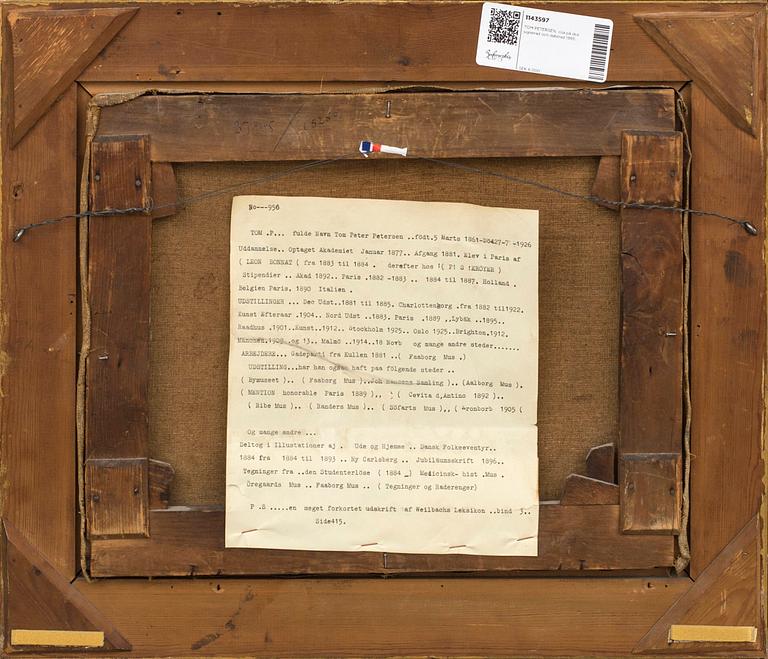 1143597
TOM PETERSEN, olja på duk,
signerad och daterad 1895.
No---956
TOM .P... fulde Navn Tom Peter Petersen ..födt.5 Marts 1861- -1926
Uddannelse.. Optaget Akademiet Januar 1877.. Afgang 1881. Elev i Paris af
( LEON BONNAT ( fra 1883 til 1884 . derefter hos ( P S KRÖYER )
Stipendier .. Akad 1892.. Paris .1882 -1883 .. 1884 til 1887. Holland .
Belgien Paris. 1890 Italien .
UDSTILLINGEN ... Dec Udst..1881 til 1885. Charlottenborg .fra 1882 til1922.
Kunst Efteraar .1904.. Nord Udst ..1883. Paris .1889 ..Lybæk ..1895..
Raadhus .1901..Kunst..1912.. Stockholm 1925.. Oslo 1925..Brighton.1912.
München.1909 og 13.. Malmö ..1914..18 Novb og mange andre steder.......
ARBEJDERE... Gadeparti fra Kullen 1881 ..( Faaborg Mus .)
UDSTILLING...har han ogsaa haft paa fölgende steder ..
( Bymuseet ).. ( Faaborg Mus )..Joh Hansens Samling ).. (Aalborg Mus ).
( MENTION honorable Paris 1889 ).. ( Cevita d,Antino 1892 )..
( Ribe Mus ).. ( Randers Mus ).. ( Söfarts Mus ).,( Kronborb 1905 (
Og mange andre ...
Deltog i Illustationer aj . Ude og Hjemme .. Dansk Folkeeventyr..
1884 fra 1884 til 1893 .. Ny Carlsberg .. Jubilæumsskrift 1896..
Tegninger fra ..den Studenterlöse ( 1884 ) Medicinsk- hist .Mus .
Öregaards Mus .. Faaborg Mus .. ( Tegninger og Raderenger)
P .S .....en meget forkortet udskrift af Weilbachs Leksikon ..bind 3..
Side415.